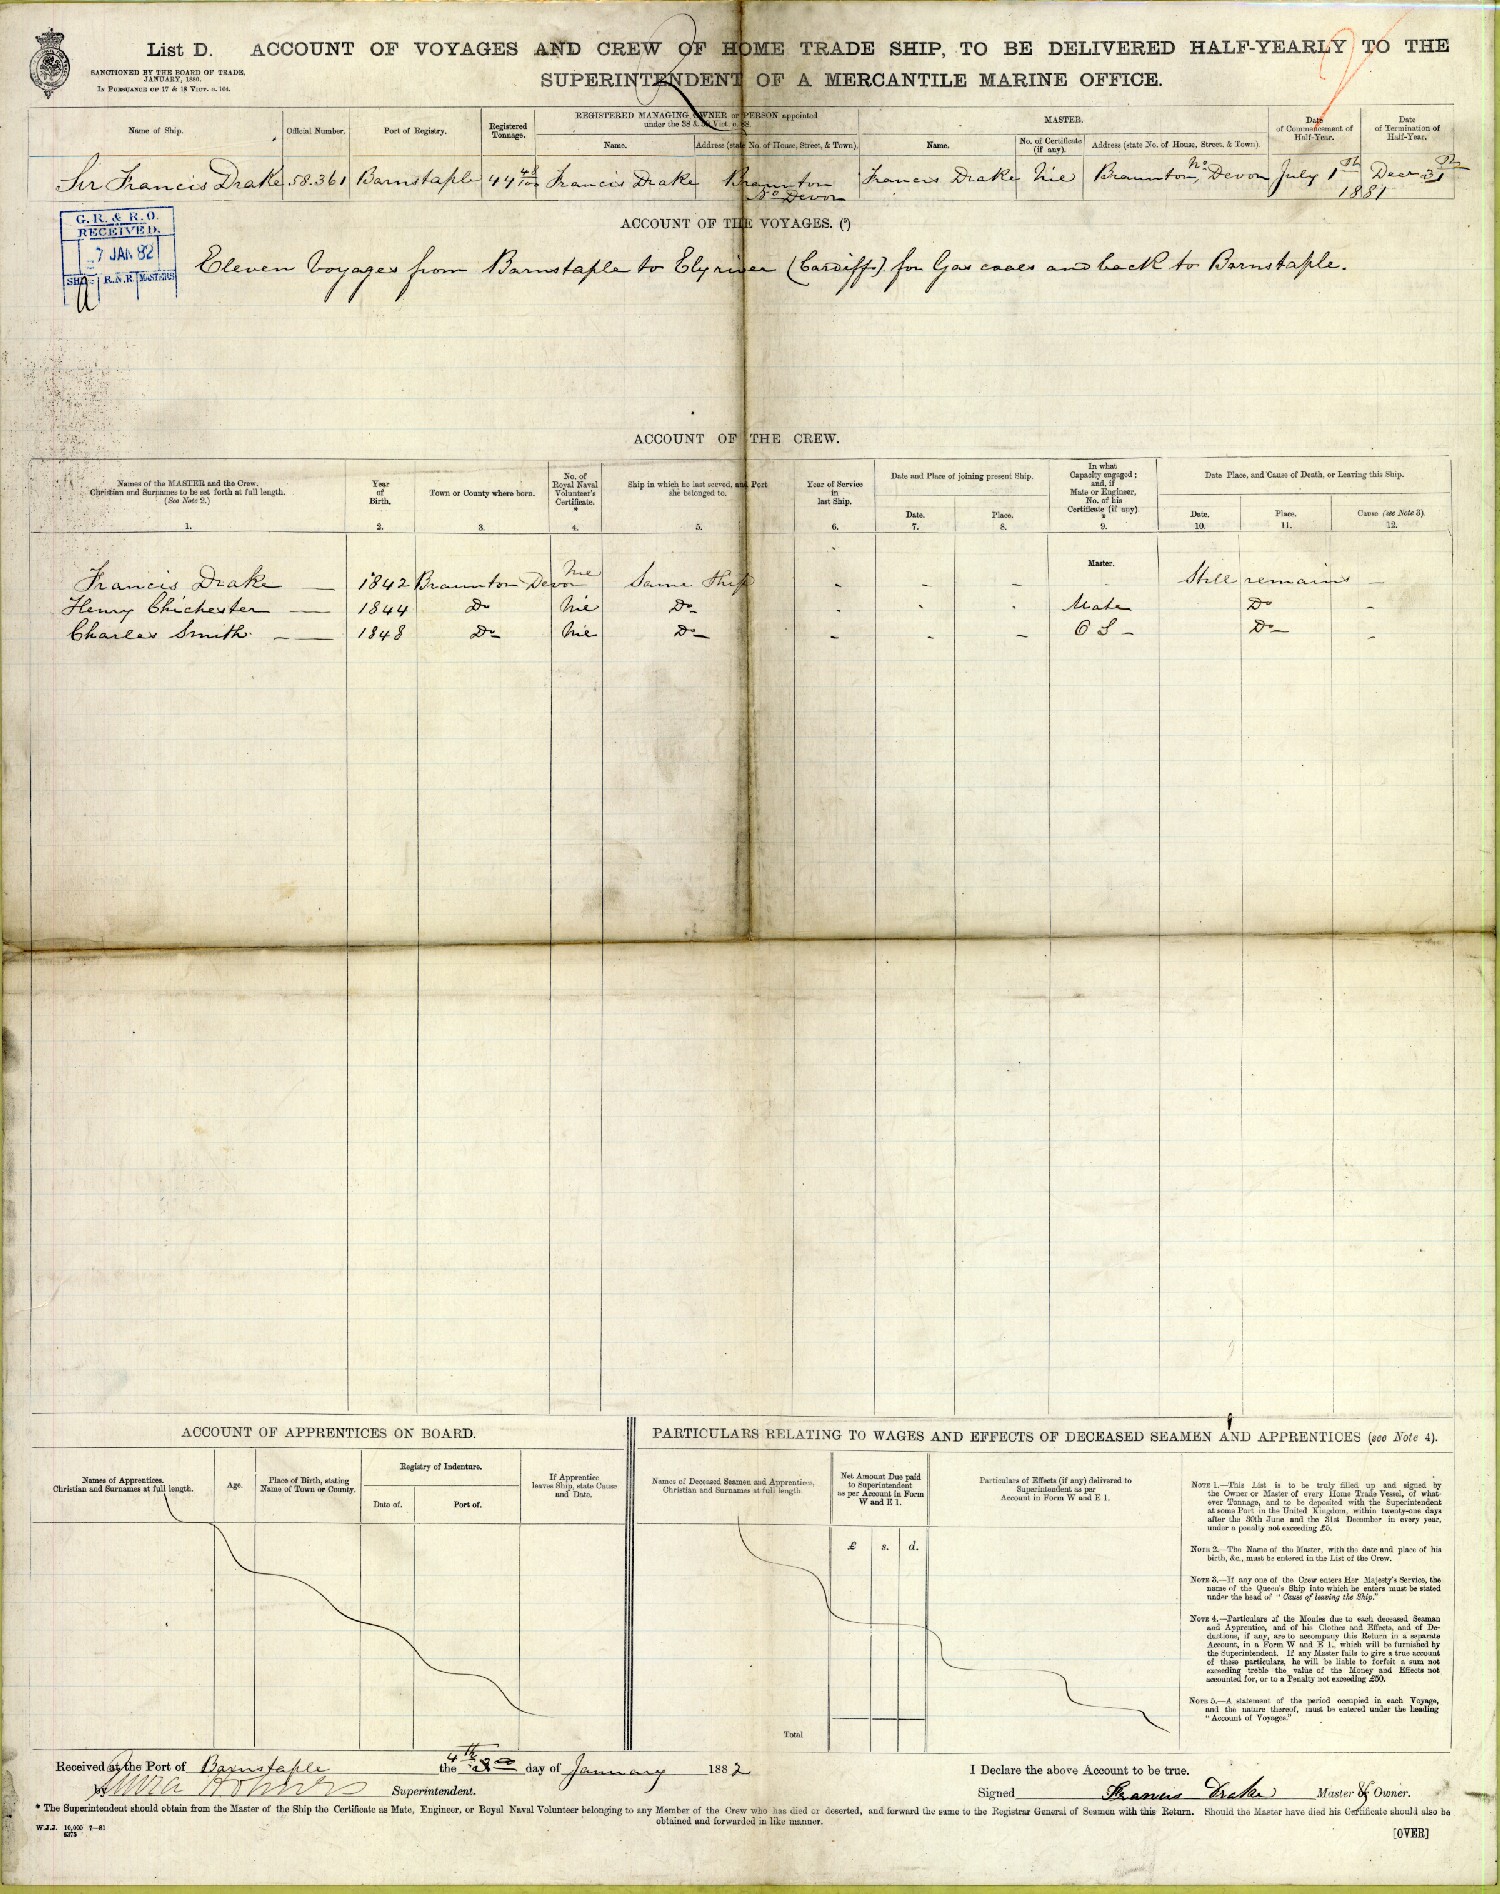 List D. ACCOUNT OF VOYAGES AND CREW OF HOME TRADE SHIP, TO BE DELIVERED HALF-YEARLY TO THE
SUPERINTENDENT OF A MERCANTILE MARINE OFFICE.
SANCTIONED BY THE BOARD OF TRADE,
JANUARY, 1880.
IN PURSUANCE OF 17 & 18 VICT. c. 104.
Name of Ship.
Official Number.
Port of Registry.
Registered
Tonnage.
REGISTERED MANAGING OWNER or PERSON appointed
under the 38 & 39 Vict. c. 88.
Name.
Address (state No. of House, Street, & Town).
MASTER.
Name.
No. of Certificate
(if any).
Address (state No. of House, Street, & Town).
Date
of Commencement of
Half-Year.
Date
of Termination of
Half-Year.
Sir Francis Drake 58.361 Barnstaple 44 48/100 Francis Drake Braunton No Devon Francis Drake Nil Braunton, No Devon July 1st 1881 Decr 31st
G. R. & R. O.
RECEIVED.
7 JAN 82
SHIPS R.N.R. MASTERS
ACCOUNT OF THE VOYAGES. (5)
Eleven Voyages from Barnstaple to Ely river (Cardiff) for Gas coals and back to Barnstaple.
ACCOUNT OF THE CREW.
Names of the MASTER and the Crew.
Christian and Surnames to be set forth at full length.
(See Note 2.)
1.
Year
of
Birth.
2.
Town or County where born.
3.
No. of
Royal Naval
Volunteer's
Certificate.
*
4.
Ship in which he last served, and Port
she belonged to.
5.
Year of Service
in
last Ship.
6.
Date and Place of joining present Ship.
Date.
7.
Place.
8.
In what
Capacity engaged;
and, if
Mate or Engineer,
No. of his
Certificate (if any)
*
9.
Date, Place, and Cause of Death, or Leaving this Ship.
Date.
10.
Place.
11.
Cause (see Note 3).
12.
Master.
Francis Drake — 1842 Braunton Devon Nil Same Ship - - - - Still remains —
Henry Chichester — 1844 Do Nil Do - - - Mate Do -
Charles Smith — 1848 Do Nil Do - - - O S - Do -
ACCOUNT OF APPRENTICES ON BOARD.
Names of Apprentices.
Christian and Surnames at full length.
Age.
Place of Birth, stating
Name of Town or County.
Registry of Indenture.
Date of.
Port of.
If Apprentice
leaves Ship, state Cause
and Date.
PARTICULARS RELATING TO WAGES AND EFFECTS OF DECEASED SEAMEN AND APPRENTICES (see Note 4).
Names of Deceased Seamen and Apprentices,
Christian and Surnames at full length
Net Amount Due paid
to Superintendent
as per Account in Form
W and E 1.
£ s. d.
Particulars of Effects (if any) delivered to
Superintendent as per
Account in Form W and E 1.
Total
NOTE 1.—This List is to be truly filled up and signed by
the Owner or Master of every Home Trade Vessel, of what-
ever Tonnage, and to be deposited with the Superintendent
at some Port in the United Kingdom, within twenty-one days
after the 30th June and the 31st December in every year,
under a penalty not exceeding £5.
NOTE 2.—The Name of the Master, with the date and place of his
birth, &c., must be entered in the List of the Crew.
NOTE 3.—If any one of the Crew enters Her Majesty's Service, the
name of the Queen's Ship into which he enters must be stated
under the head of "Cause of leaving the Ship."
NOTE 4.—Particulars of the Monies due to each deceased Seaman
and Apprentice, and of his Clothes and Effects, and of De-
ductions, if any, are to accompany this Return in a separate
Account, in a Form W and E 1., which will be furnished by
the Superintendent. If any Master fails to give a true account
of these particulars, he will be liable to forfeit a sum not
exceeding treble the value of the Money and Effects not
accounted for, or to a Penalty not exceeding £50.
NOTE 5.—A statement of the period occupied in each Voyage,
and the nature thereof, must be entered under the heading
"Account of Voyages."
Received at the Port of Barnstaple the 4th day of January 1882
by Superintendent.
I Declare the above Account to be true.
Signed Francis Drake Master & Owner.
* The Superintendent should obtain from the Master of the Ship the Certificate as Mate, Engineer, or Royal Naval Volunteer belonging to any Member of the Crew who has died or deserted, and forward the same to the Registrar General of Seamen with this Return. Should the Master have died his Certificate should also be
obtained and forwarded in like manner.
W.J.J. 10,000 7—81
8373
[OVER]